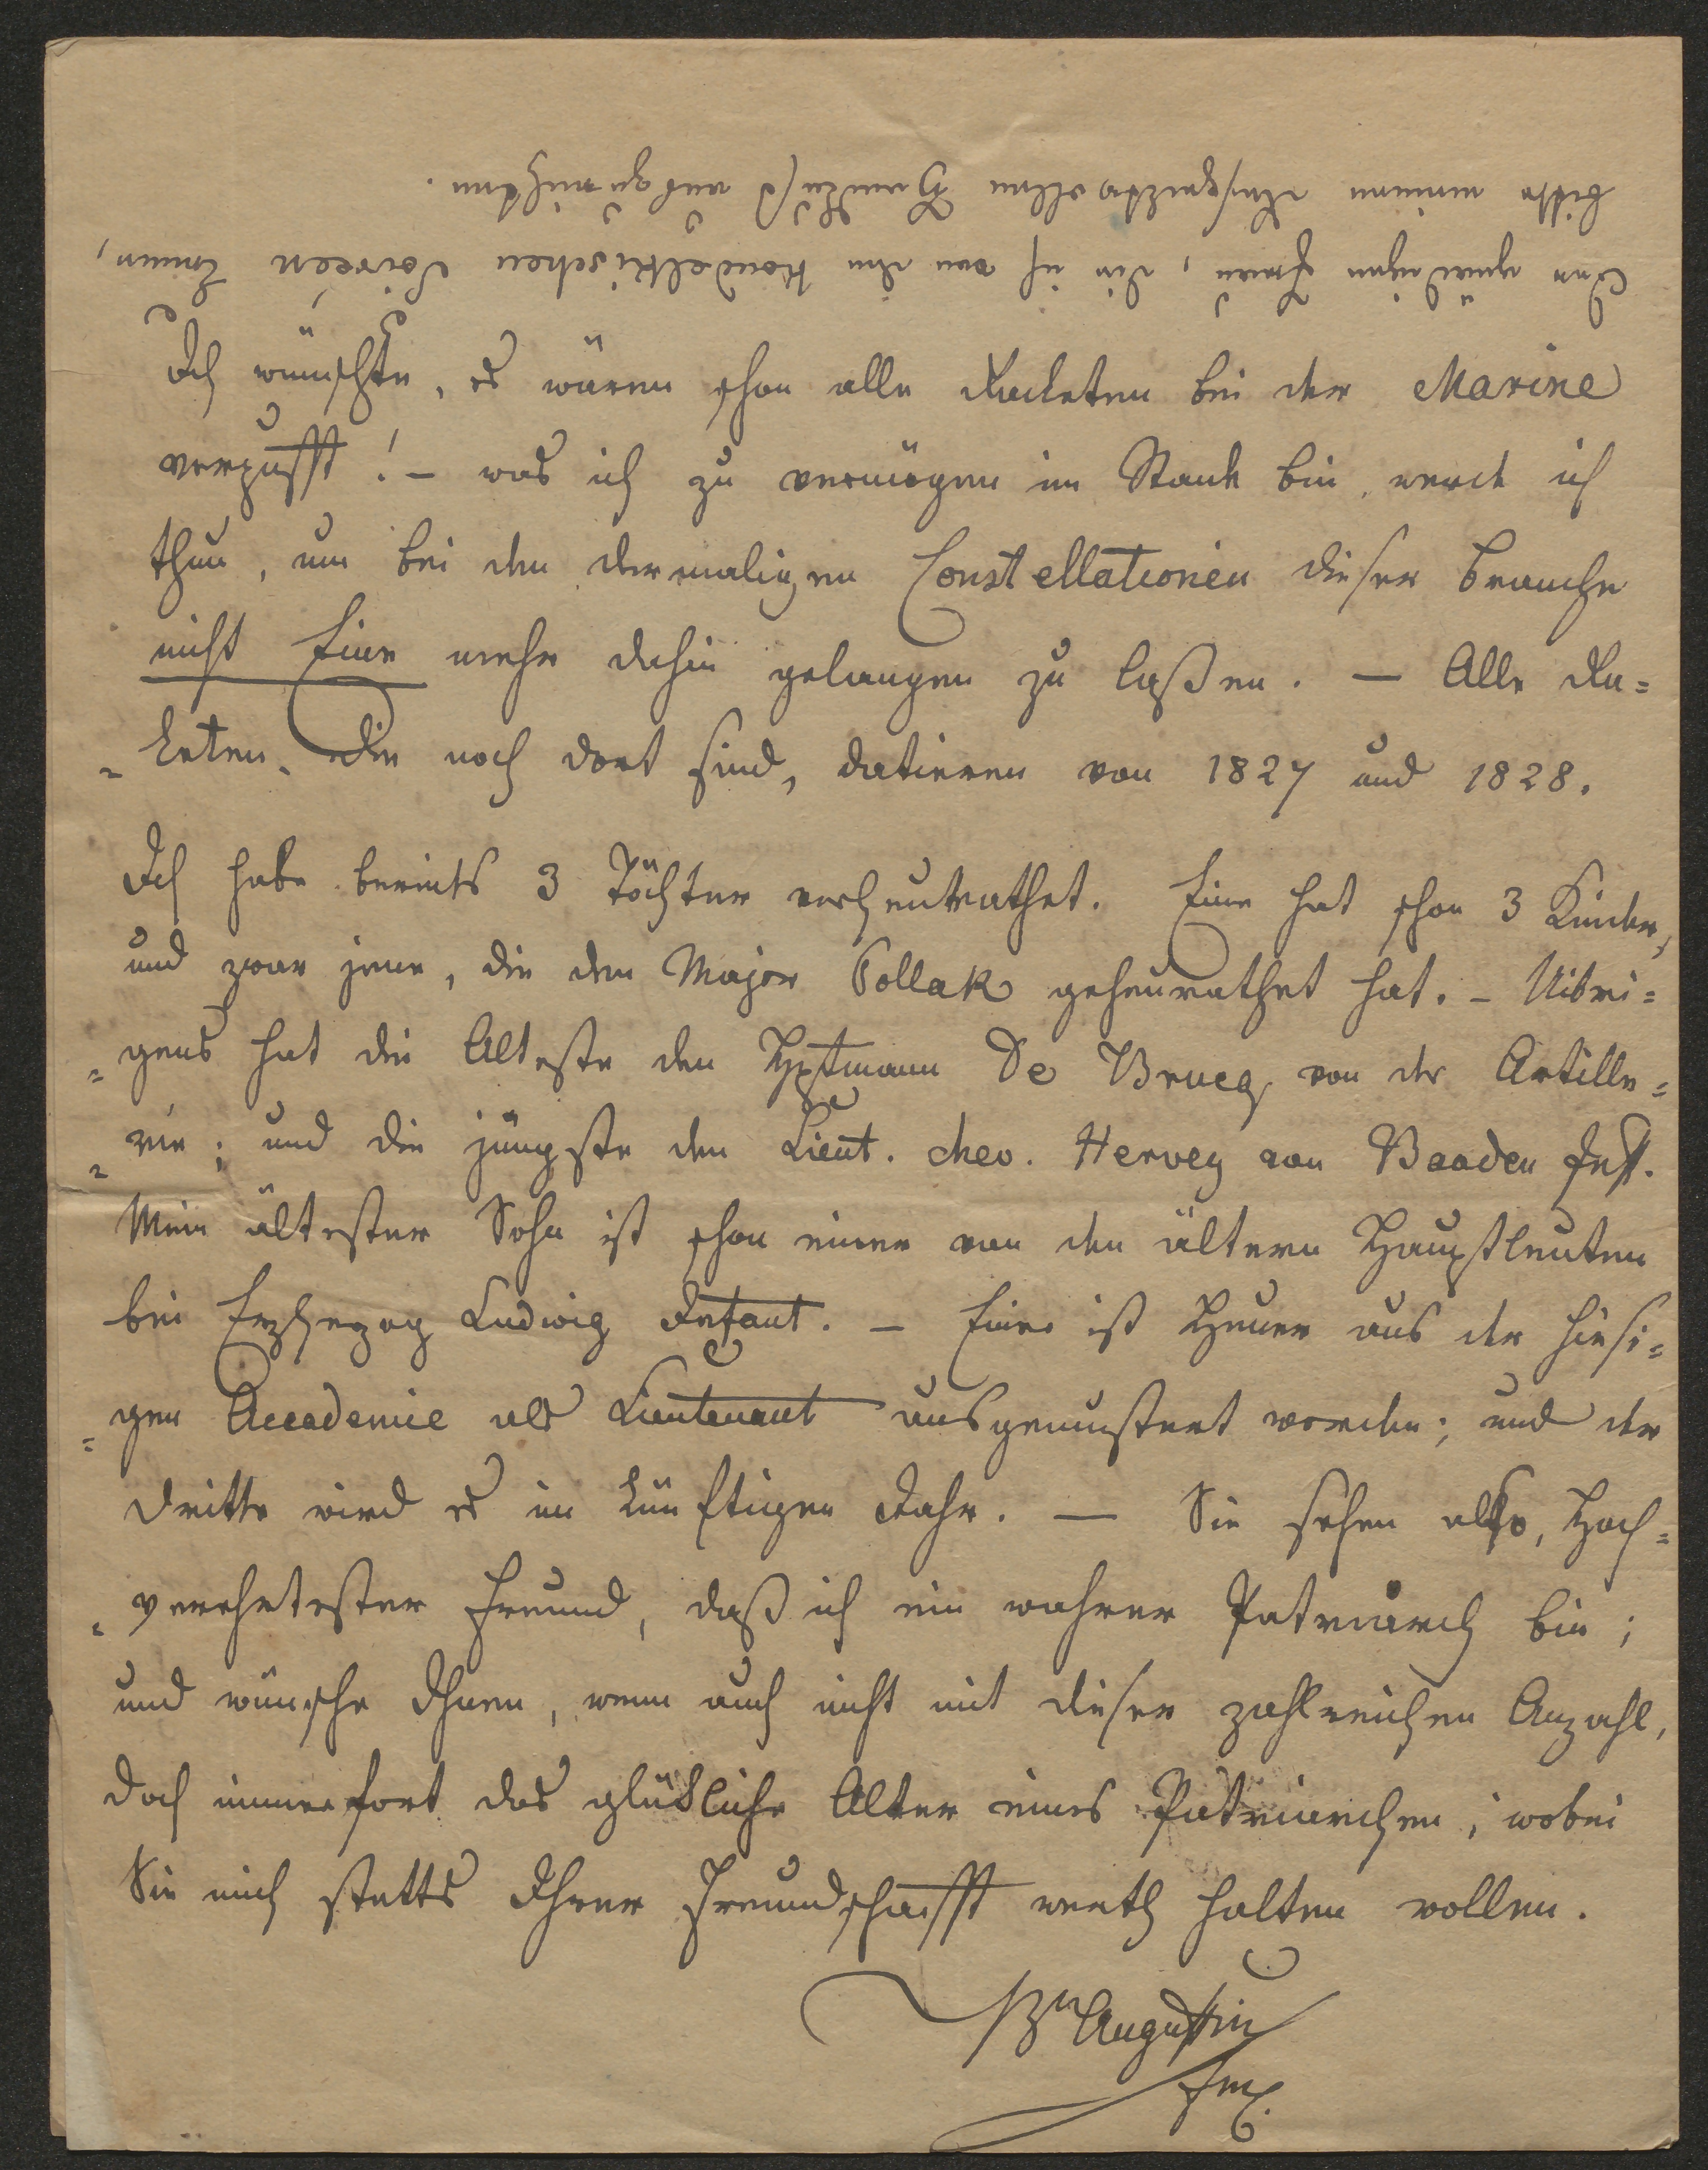 Ich wünschte, es wären schon alle Racketen bei der Marine
verpufft! – was ich zu vermögen im Stande bin, werde ich
thun, um bei den dermaligen Constellationen dieser Branche
nicht Eine mehr dahin gelangen zu laßen. – Alle Ra=
=keten, die noch dort sind, datieren von 1827 und 1828.
Ich habe bereits 3 Töchter verheurathet. Eine hat schon 3 Kinder,
und zwar jene, die den Major Pollak geheurathet hat. – Uibri=
=gens hat die Älteste den Hptmann De Brucq, von der Artille=
=rie; und die jüngste den Lieut. chev. Hervey von Baaden Inft.
Mein ältester Sohn ist schon einer von den ältern Hauptleuten
bei Erzherzog Ludwig Infant. – Einer ist Heuer aus der hiesi=
=gen Accademie als Lieutenant ausgemustert worden; und der
dritte wird es im künftigen Jahr. — Sie sehen also, Hoch=
=verehrtester Freund, daß ich ein wahrer Patriarch bin;
und wünsche Ihnen, wenn auch nicht mit dieser zahlreichen Anzahl,
doch immerfort das glükliche Alter eines Patriarchen; wobei
Sie mich stetts Ihrer Freundschafft werth halten wollen.
Bn Augustin
Fmlt.
Der gnädigen Frau, die ich von den Koudelkischen Soiréen kenne,
bitte meinen Hochachtungsvollen Handkuß auszurichten.